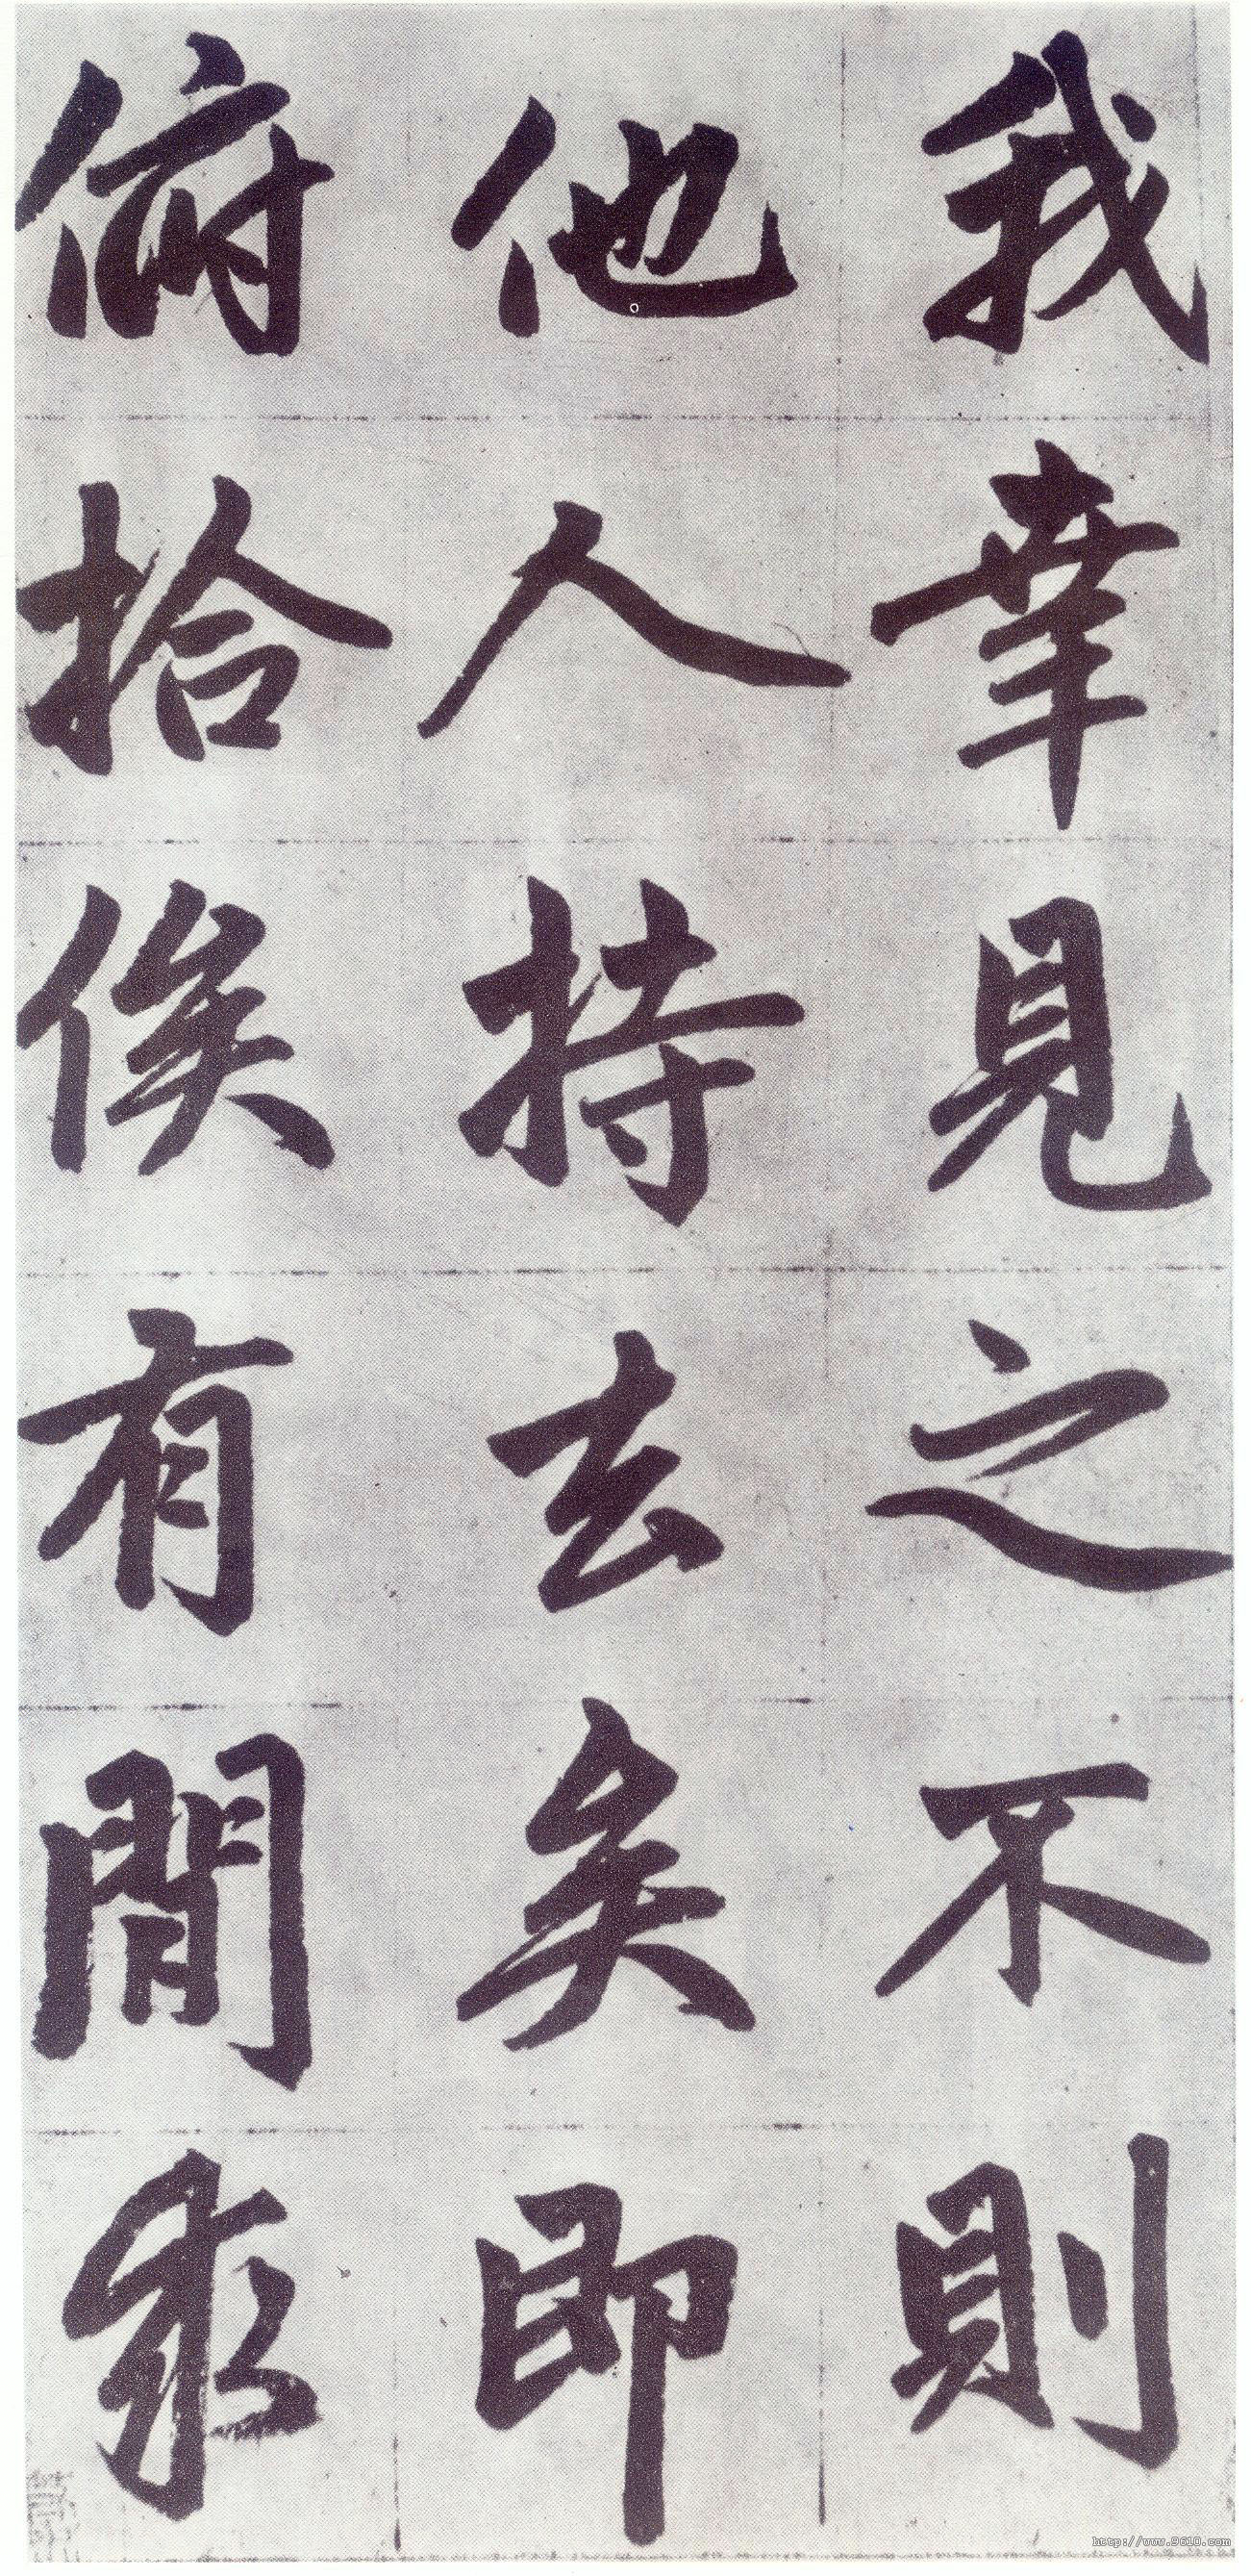 我幸見之不則
他人持去矣即
俯拾俟有間求
http://www.9610.com